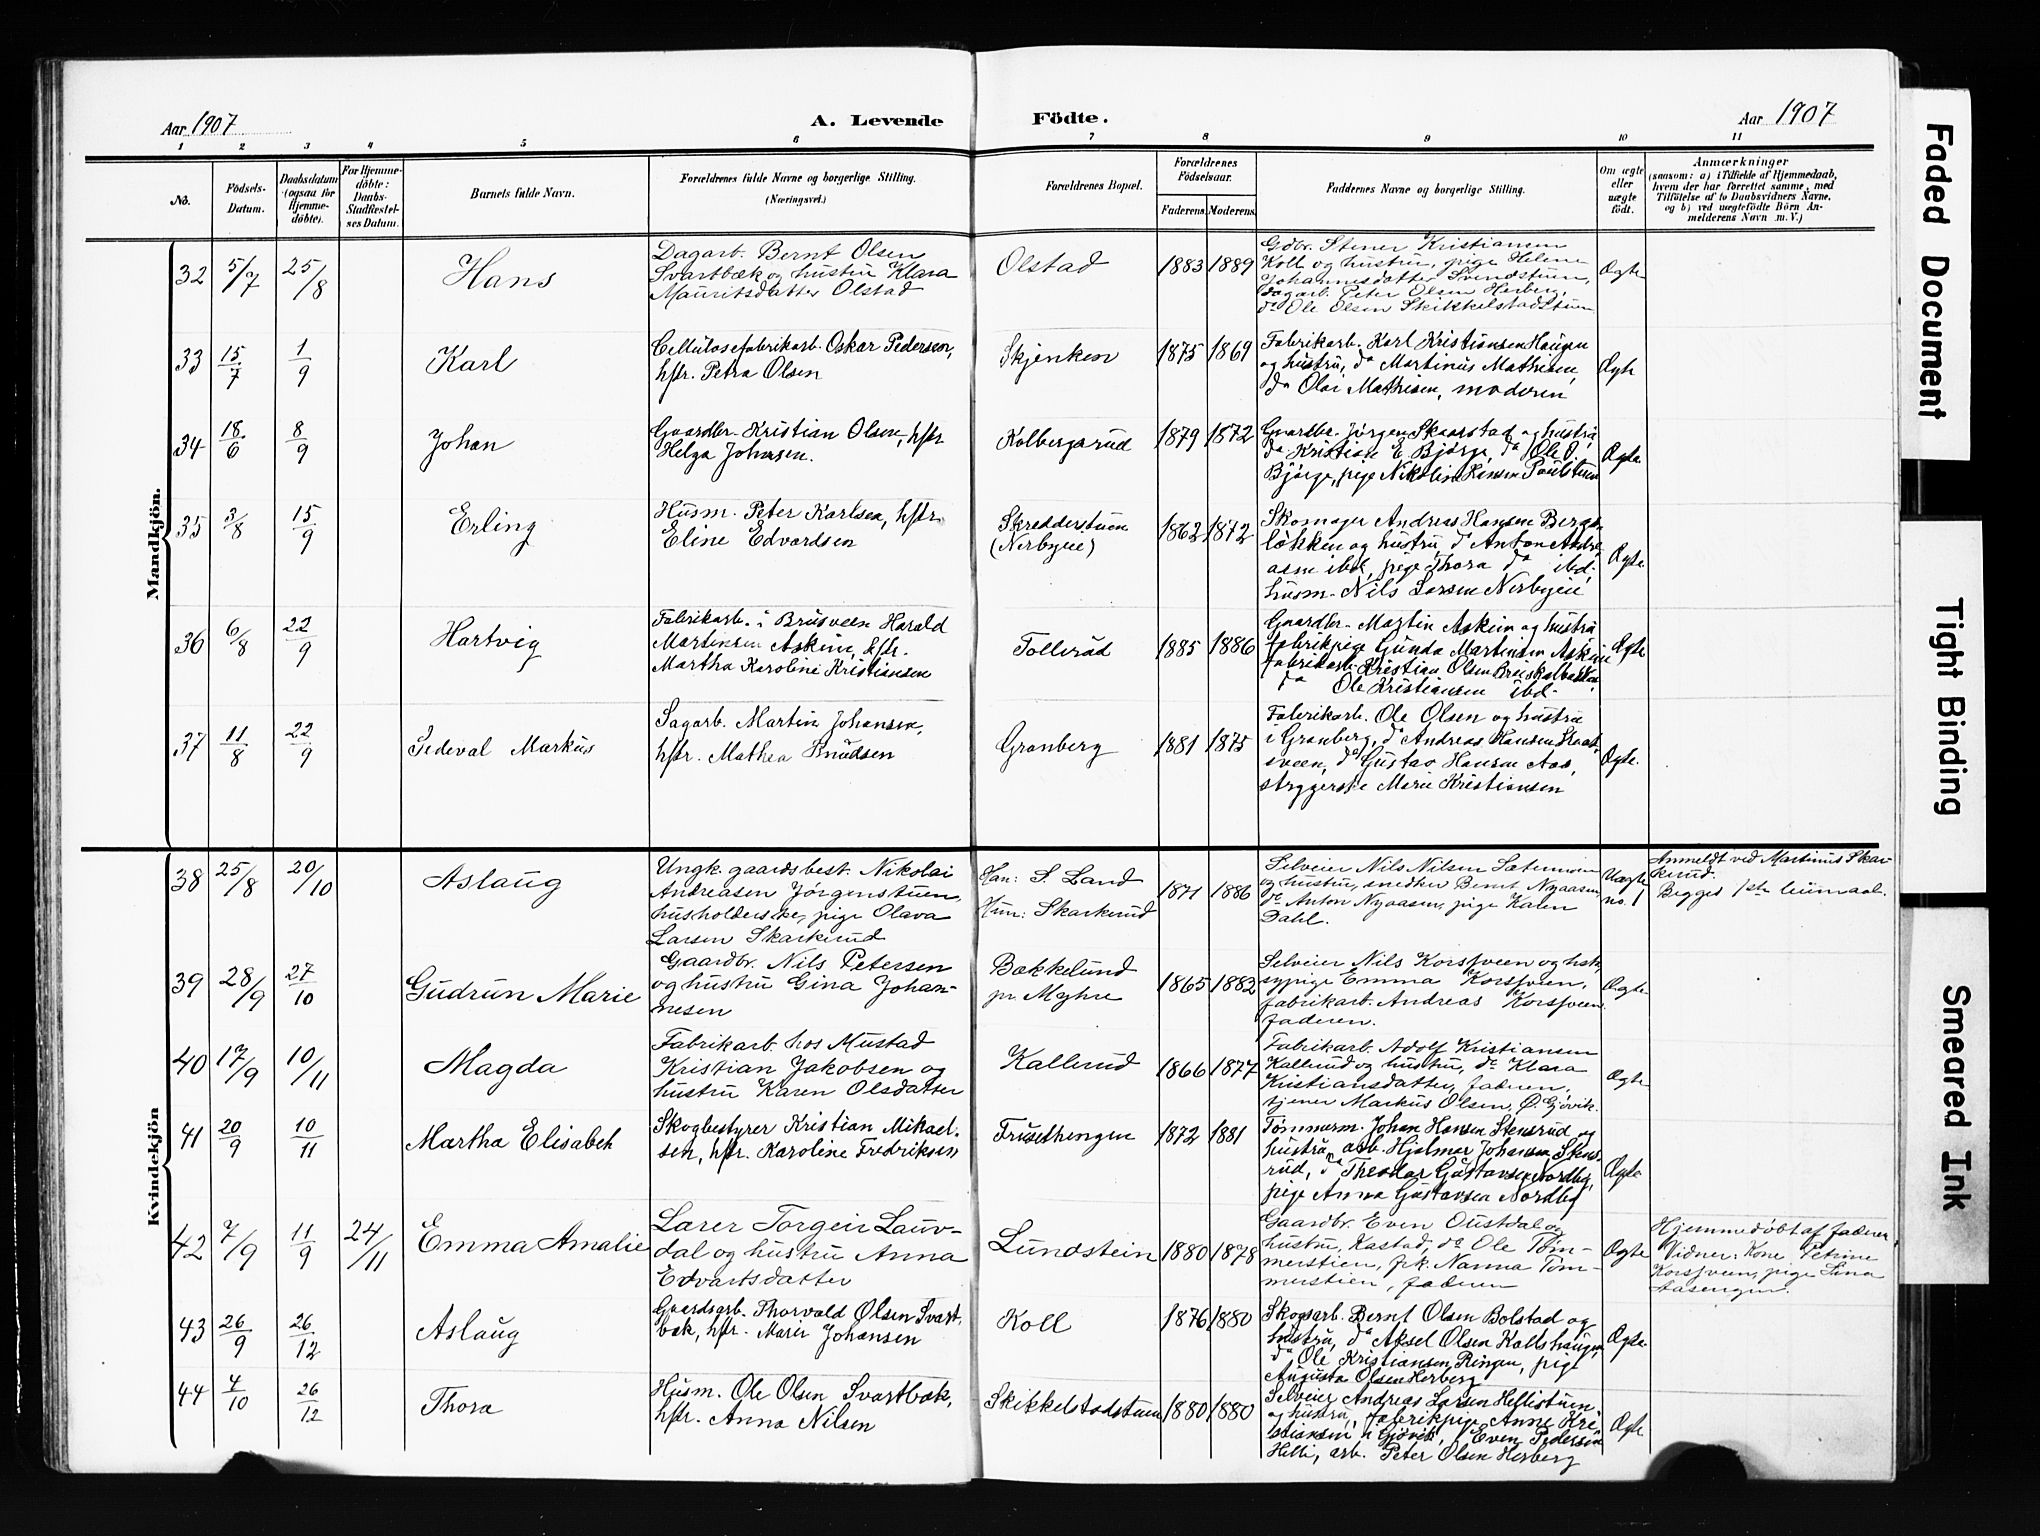 Aar 1907
A. Levende Födte.
Aar 1907
1 2 3 4 5 6 7 8 9 10 11
No.
Födsels-Datum.
Daabsdatum (ogsaa for Hjemmedöbte).
For Hjemmedöbte: Daabs-Stadfæstelses Datum.
Barnets fulde Navn.
Forældrenes fulde Navne og borgerlige Stilling.
(Næringsvei.)
Forældrenes Bopæl.
Forældrenes Födselsaar.
Faderens. Moderens.
Faddernes Navne og borgerlige Stilling.
Om ægte eller uægte født.
Anmærkninger
(saasom: a) i Tilfælde af Hjemmedaab,
hvem der har forrettet samme, med
Tilföielse af to Daabsvidners Navne,
og b) ved uægtefödte Börn Anmelderens Navn m. V.)
Mandkjön.
32 5/7 25/8 Hans
Dagarb. Bernt Olsen
Svartbæk og hustru Klara
Mauritsdatter Olstad
Olstad 1883 1889
Gdbr. Stener Kristiansen
Koll og hustru, pige Helene
Johannesdatter Svendstuen,
dagarb. Peter Olsen Herberg,
do Ole Olsen Skikkelstadstuen
Ægte
33 15/7 1/9 Karl
Cellulosefabrikarb. Oskar Pedersen,
hstr. Petra Olsen
Skjenken 1875 1869
Fabrikarb. Karl Kristiansen Haugen
og hustru, do Martinus Mathisen,
do Olai Mathisen, moderen
Ægte
34 18/6 8/9 Johan
Gaardbr. Kristian Olsen, hstr.
Helga Johnsen.
Kolbergsrud 1879 1872
Gaardbr. Jørgen Skaarstad og hustru
do Kristian E. Bjørge, do Ole O.
Bjørge, pige Nikoline Hansen Paulstuen
Ægte
35 3/8 15/9 Erling
Husm. Peter Karlsen, hstr.
Eline Edvardsen
Skredderstuen
(Nerbyeie)
1862 1872
Skomager Andreas Hansen Bergs-
løkken og hustru, do Anton Andre-
asen ibd, pige Thora do ibd,
husm. Nils Larsen Nerbyeie
Ægte
36 6/8 22/9 Hartvig
Fabrikarb. i Brusveen Harald
Martinsen Askim, hstr.
Martha Karoline Kristiansen
Tollerud 1885 1886
Gaardbr. Martin Askim og hustru
fabrikpige Gunda Martinsen Askim
fabrikarb. Kristian Olsen
do Ole Kristiansen ibd.
Ægte
37 11/8 22/9 Sedeval Markus
Sagarb. Martin Johansen,
hstr. Mathea Knudsen
Granberg 1881 1875
Fabrikarb. Ole Olsen og hustru
i Granberg, do Andreas Hansen
sveen, do Gustav Hansen Aas,
strygerske Marie Kristiansen
Ægte.
Kvindekjön
38 25/8 20/10 Aslaug
Ungk. gaardsbest. Nikolai
Andreasen Jørgenstuen,
husholderske, pige Olava
Larsen Skarkerud
Han: S. Land
Hun: Skarkerud
1871 1886
Selveier Nils Nilsen Sætermoen
og hustru, snedker Bernt Nyaasen,
do Anton Nyaasen, pige Karen
Dahl.
Uægte
no. 1
Anmeldt ved Martinus Skar-
kerud.
Begges 1ste leiermaal.
39 28/9 27/10 Gudrun Marie
Gaardbr. Nils Petersen
og hustru Gina Johan-
nesen
Bækkelund
pr. Myhre
1865 1882
Selveier Nils Korsveen og hstr,
sypige Emma Korsveen,
fabrikarb. Andreas Korsveen
faderen.
Ægte
40 17/9 10/11 Magda
Fabrikarb. hos Mustad
Kristian Jakobsen og
hustru Karen Olsdatter
Kallerud 1866 1877
Fabrikarb. Adolf Kristiansen
Kallerud og hustru, do Klara
Kristiansdatter, faderen,
tjener Markus Olsen, Ø. Gjøvik.
Ægte
41 20/9 10/11 Martha Elisabeh
Skogbestyrer Kristian Mikael-
sen, hstr. Karoline Fredriksen
Fruesethengen 1872 1881
Tømmerm. Johan Hansen Stensrud og
hustru, arb. Hjalmar Johansen Stens-
rud, do Theodor Gustavsen Nordby,
pige Anna Gustavsen Nordby
Ægte
42 7/9 11/9 24/11 Emma Amalie
Lærer Torgeir Lauv-
dal og hustru Anna
Edvartsdatter
Lundstein 1880 1878
Gaardbr. Even Oustdal og
hustru, Kastad, do Ole Tøm-
merstien, frk. Nanna Tøm-
merstien, faderen
Ægte
Hjemmedøbt af faderen
Vidner: Kone Petrine
Korsveen, pige Lina
Aasengen.
43 26/9 26/12 Aslaug
Gaardsarb. Thorvald Olsen Svart-
bæk, hstr. Marie Johansen
Koll 1876 1880
Skogsarb. Bernt Olsen Bolstad og
hustru, do Aksel Olsen Kollshaugen,
do Ole Kristiansen Ringen, pige
Augusta Olsen Herberg
Ægte
44 4/10 26/12 Thora
Husm. Ole Olsen Svartbæk,
hstr. Anna Nilsen
Skikkelstadstuen 1880 1880
Selveier Andreas Larsen Hellistuen
og hustru, fabrikpige Anne Kri-
stiansen i Gjøvik, Even Pedersen
Helli, arb. Peter Olsen Herberg
Ægte
Faded Document
Tight Binding
Smeared Ink